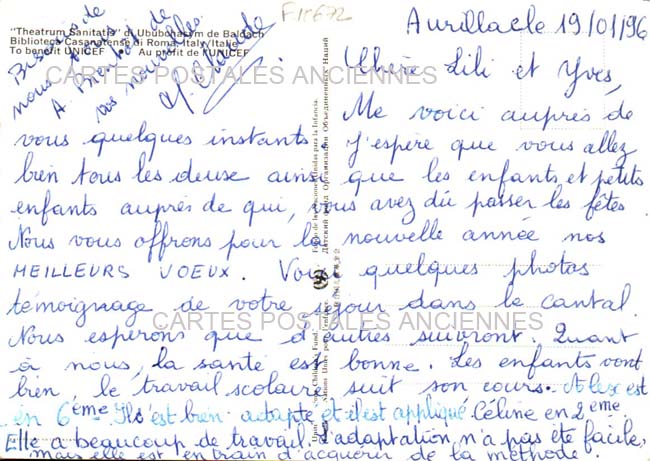 F1P672
Aurillac le 19/01/96
"Theatrum Sanitatis" di Ububchasym de Baldach
Biblioteca Casanatense di Roma, Italy/Italie
To benefit UNICEF Au profit de l'UNICEF
CARTES POSTALES ANCIENNES
Chers Lili et Yves,
Me voici auprès de
vous quelques instants. J'espère que vous allez
bien tous les deuse ainsi que les enfants et petits
enfants auprès de qui, vous avez dû passer les fêtes
Nous vous offrons pour la nouvelle année nos
MEILLEURS VOEUX. Voici quelques photos
témoignage de votre séjour dans le cantal.
CARTES POSTALES ANCIENNES
Nous espérons que d'autres suivront. Quant
à nous, la santé est bonne. Les enfants vont
bien, le travail scolaire suit son cours. Alex est
en 6ème. Il s'est bien adapté et il est appliqué Céline en 2eme.
Elle a beaucoup de travail. L'adaptation n'a pas été facile,
mais elle est en train d'acquérir de la méthode.
Bisous de
nous tous
A Bientôt de
vos nouvelles